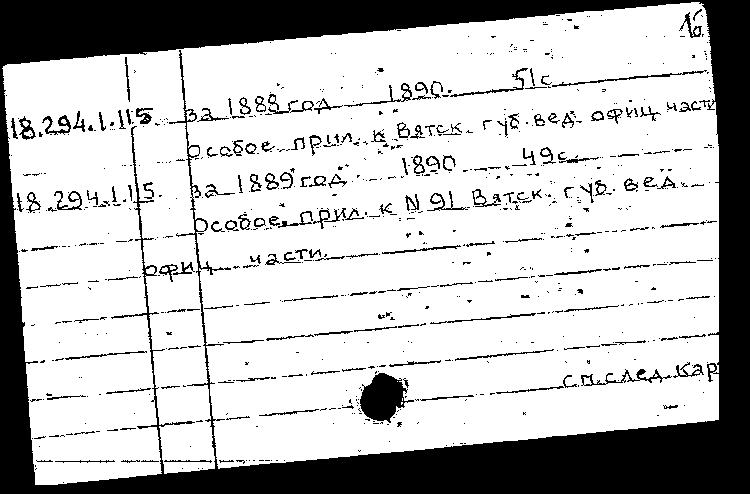 1б
18.294.1.115. за 1888 год 1890. 51с.
Особое прил. к Вятск. губ. вед. офиц части
18.294.1.115. за 1889 год 1890 49с.
Особое. прил. к N 91 Вятск. губ. вед.
офиц части.
см. след. кар